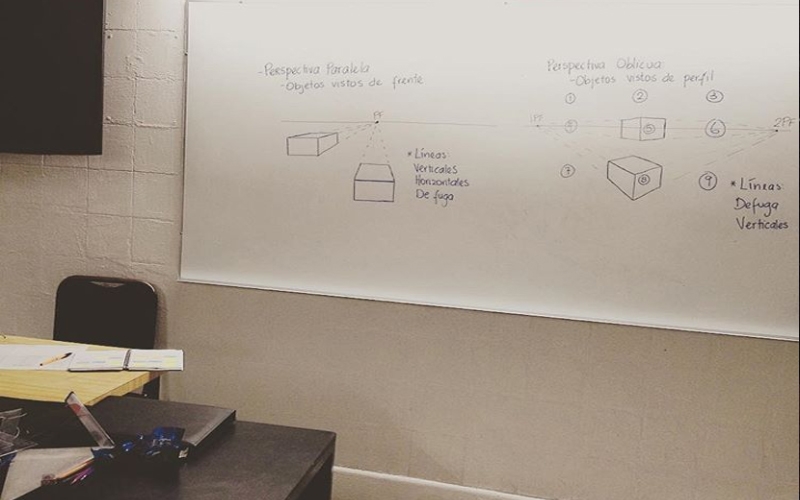 - Perspectiva Paralela
- Objetos vistos de frente
PF
* Líneas:
Verticales
Horizontales
De fuga
Perspectiva Oblicua:
- Objetos vistos de perfil
1 2 3
1PF
5 6
2PF
7 8 9
* Líneas:
De fuga
Verticales